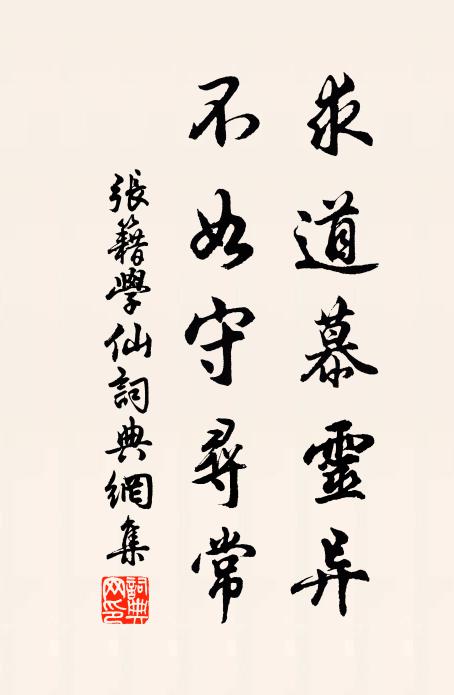 求道慕靈异
不如守尋常
張籍學仙詞典網集
詞典网印